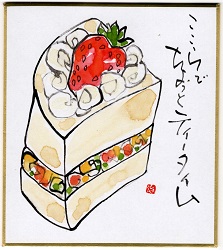 ここらで
ちょっとティータイム